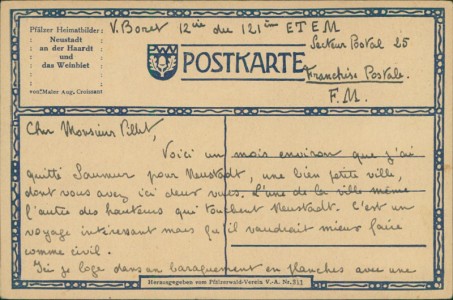 Pfälzer Heimatbilder:
Neustadt
an der Haardt
und
das Weinbiet
von Maler Aug. Croissant
V. Boret 12ième du 121ème ETEM
Secteur Postal 25
POSTKARTE
Franchise Postale.
F.M.
Cher Monsieur Pillet,
Voici un mois environ que j'ai
quitté Saumur pour Neustadt, une bien petite ville,
dont vous avez ici deux vues. L'une de la ville même
l'autre des hauteurs qui touchent Neustadt. C'est un
voyage intéressant mais qu'il vaudrait mieux faire
comme civil.
Ici je loge dans un baraquement en planches avec une
Herausgegeben vom Pfälzerwald-Verein V.-A. Nr.